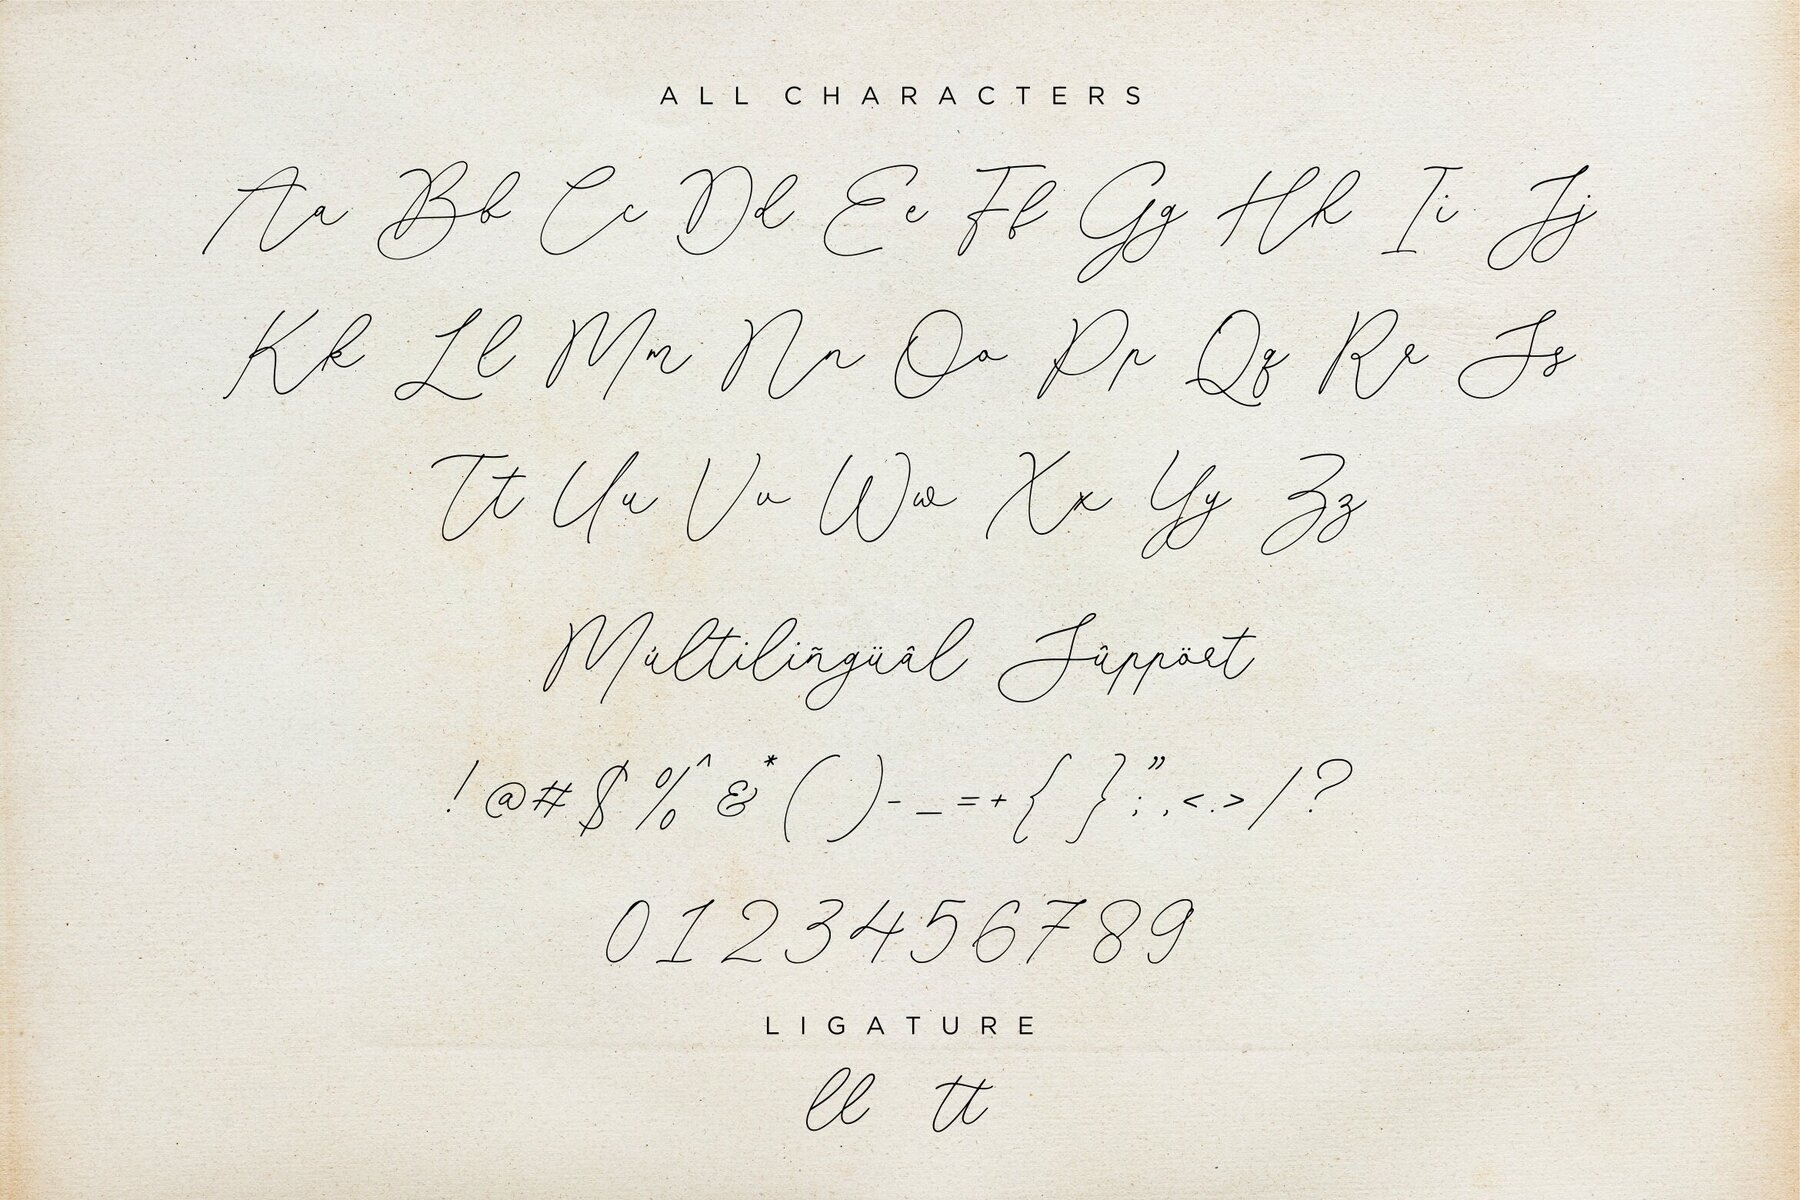 ALL CHARACTERS
Aa Bb Cc Dd Ee Ff Gg Hh Ii Jj
Kk Ll Mm Nn Oo Pp Qq Rr Ss
Tt Uu Vv Ww Xx Yy Zz
Múltiliñgüâl Sûppört
! @ # $ % ^ & * ( ) - _ = + { } ” ; , < . > / ?
0 1 2 3 4 5 6 7 8 9
LIGATURE
ll tt